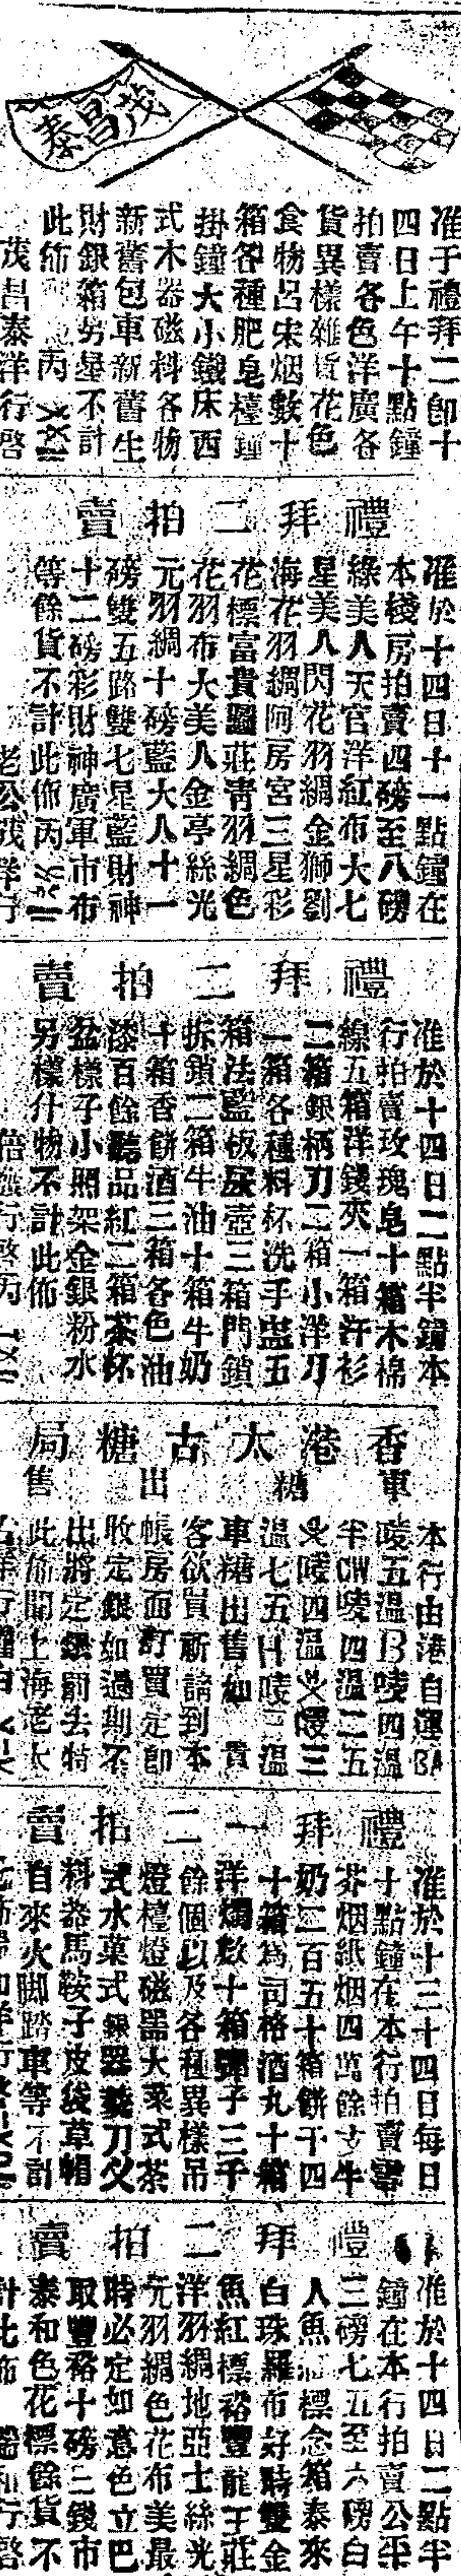 茂昌泰
准于禮拜二卽十
四日上午十點鐘
拍賣各色洋廣各
貨異樣雜貨花色
食物呂宋烟數十
箱各種肥皂檯鐘
掛鐘大小鐵床西
式木器磁料各物
新舊包車新舊生
財銀箱另星不計
此佈 丙
茂昌泰洋行啓
禮拜二拍賣
准於十四日十一點鐘在
本棧房拍賣四磅至八磅
綠美人天官洋紅布大七
星美人閃花羽綢金獅劉
海花羽綢阿房宮三星彩
花標富貴圖莊青羽綢色
花羽布大美人金亭絲光
元羽綢十磅藍大人十一
磅雙五路雙七星藍財神
十二磅彩財神廣軍市布
等餘貨不計此佈丙
老公茂洋行
禮拜二拍賣
准於十四日二點半鐘本
行拍賣玫瑰皂十箱木棉
線五箱洋錢夾一箱汗衫
二箱銀柄刀二箱小洋刀
一箱各種料杯洗手盅五
箱法藍板尿壺三箱門鎖
拆鎖二箱牛油十箱牛奶
十箱香餅酒三箱各色油
漆百餘聽品紅二箱茶杯
盆樣子小照架金銀粉水
另樣什物不計此佈
香港太古糖局
車糖出售
本行由港自運BA
唛五溫B唛四溫
半CW唛四溫二五
唛四溫 唛三
溫七五H唛三溫
車糖出售如 貴
客欲買祈請到本
帳房面訂買定卽
收定銀如過期不
出將定銀罰去特
此佈開上海老太
古洋行
禮拜一二拍賣
准於十三十四日每日
十點鐘在本行拍賣雪
茄烟紙烟四萬餘支牛
奶二百五十箱餅干四
十箱為司格酒九十箱
洋燭數十箱彈子三千
餘個以及各種異樣吊
燈檯燈磁器大菜式茶
式水菓式銀器義刀父
料器馬鞍子皮袋草帽
自來火脚踏車等不計
禮拜二拍賣
准於十四日二點半
鐘在本行拍賣公平
三磅七五至六磅白
人魚 標念箱泰來
白珠羅布好時雙金
魚紅標裕豐龍王莊
洋羽綢地亞士絲光
元羽綢色花布美最
時必定如意色立巴
取豐裕十磅三錢市
泰和色花標餘貨不
計此佈 瑞和行啓